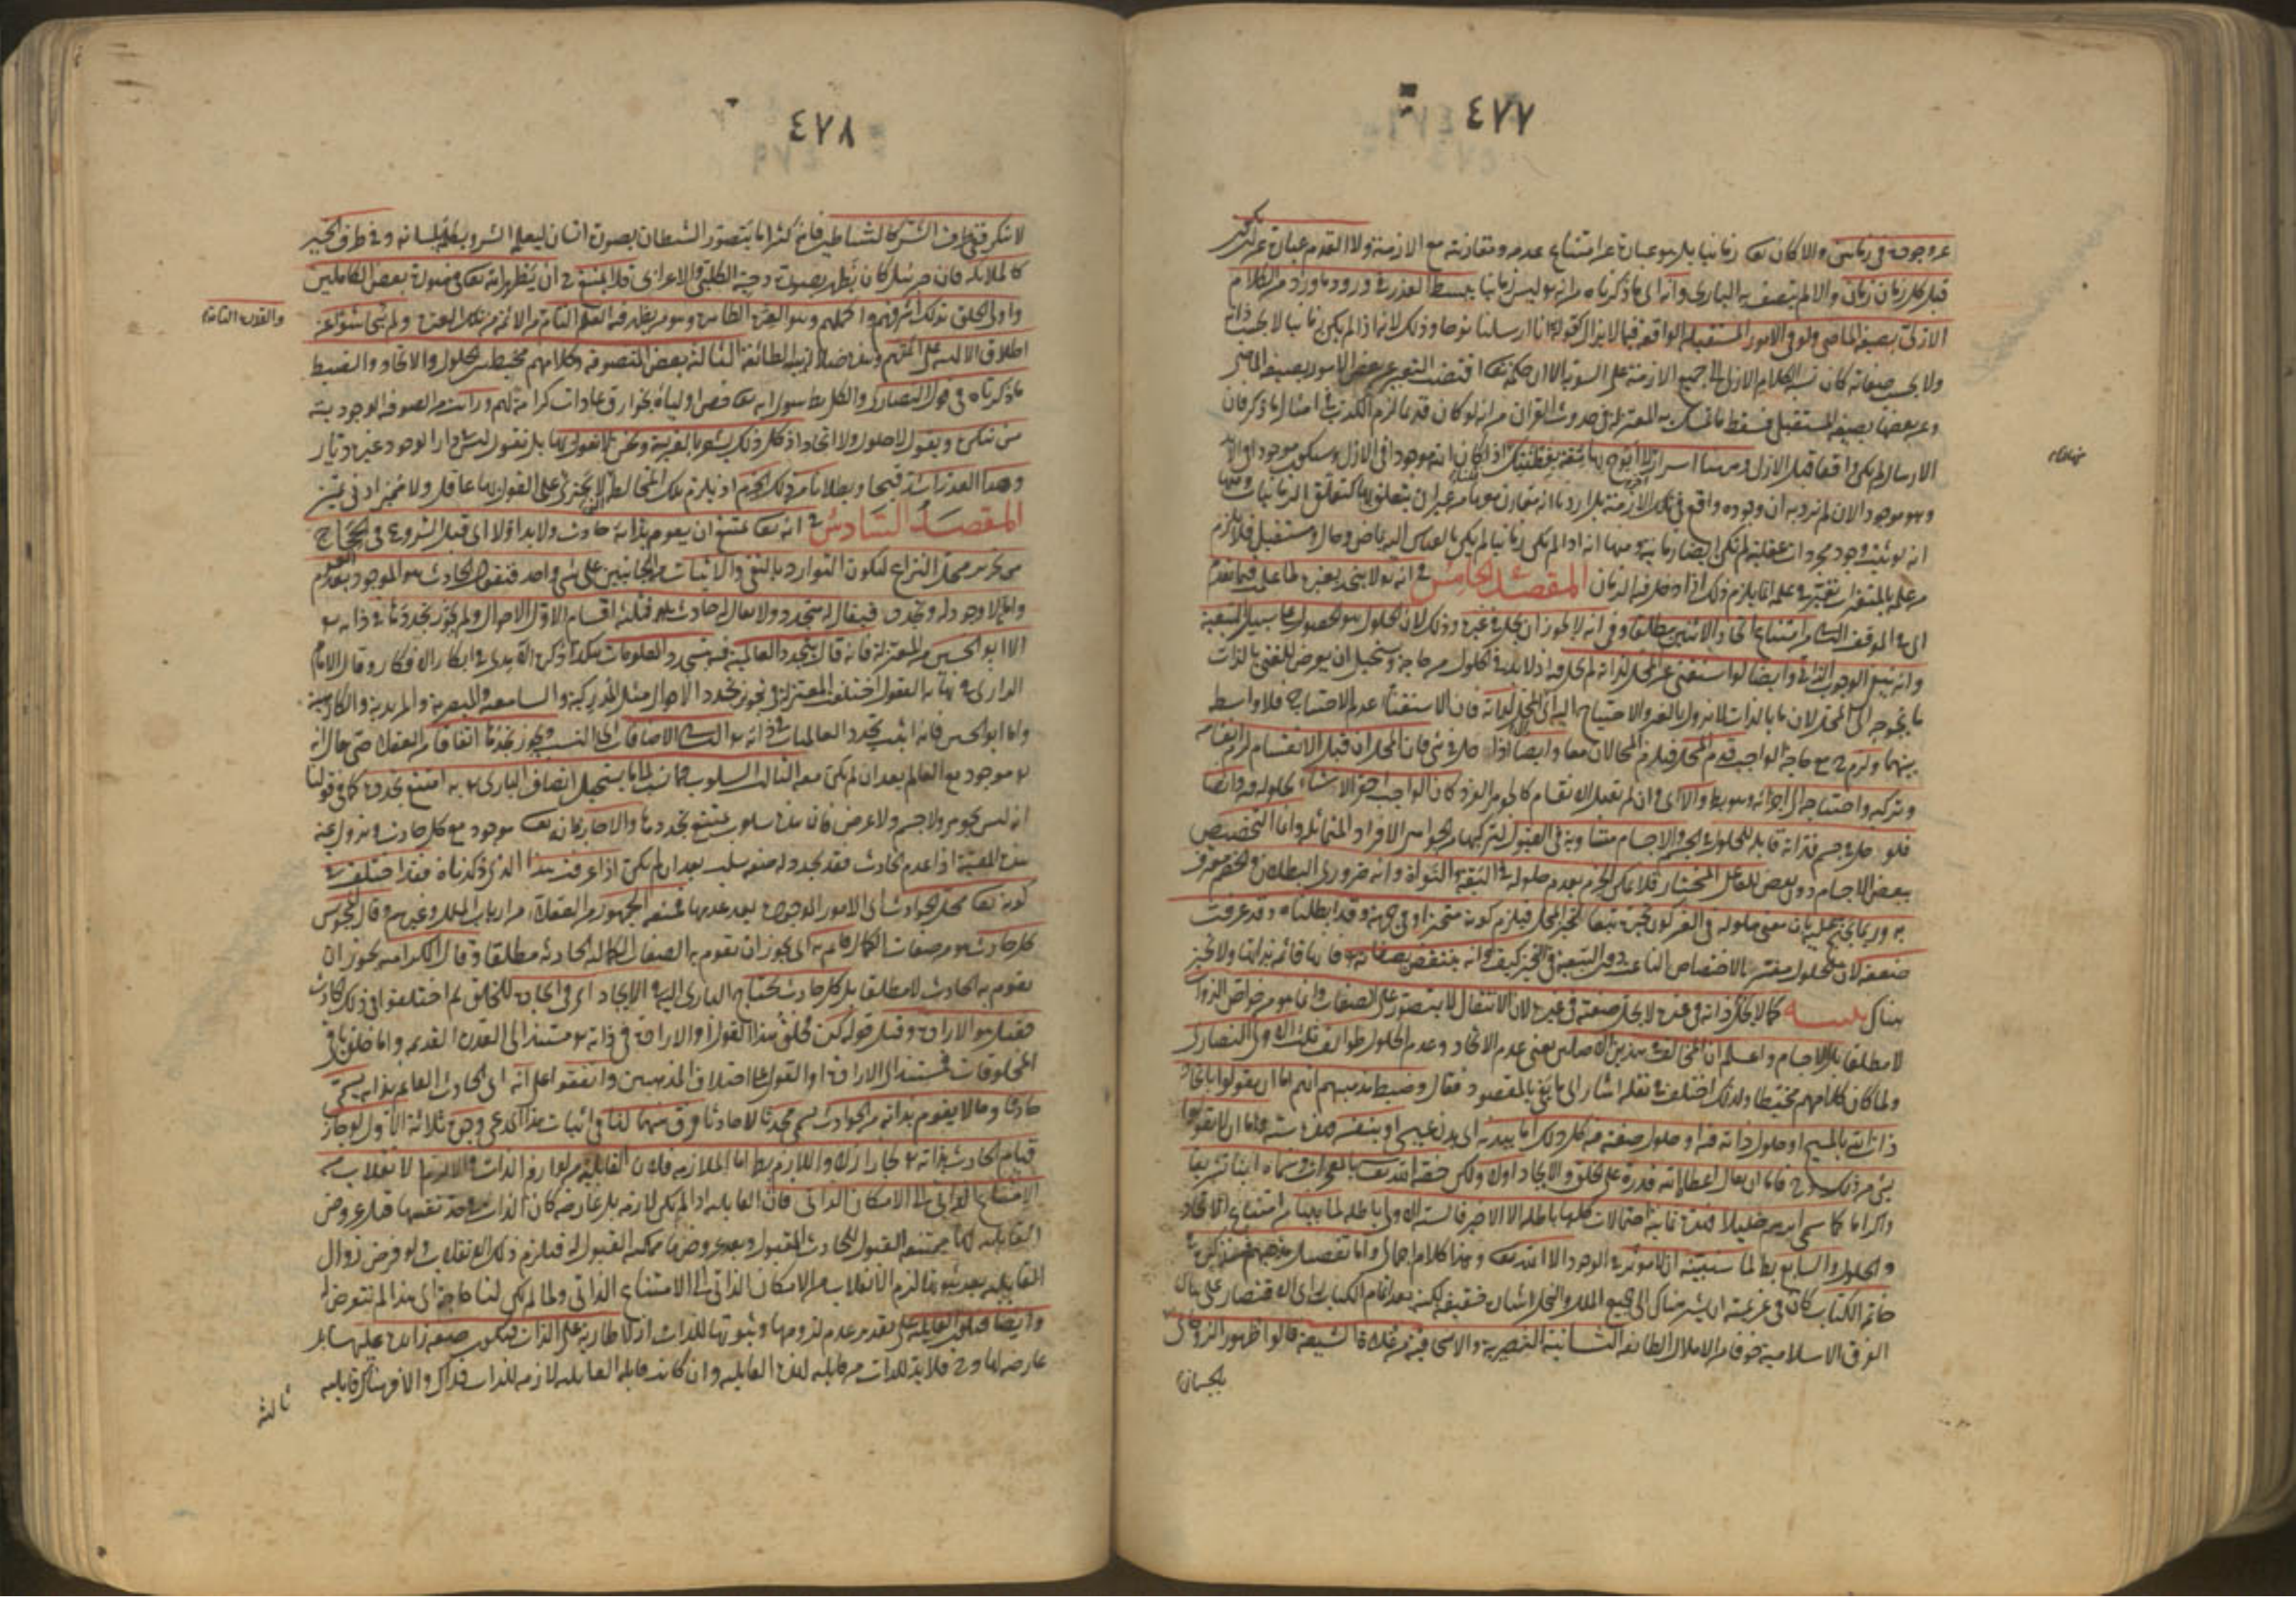 ٤٧٧
عن وجوده في زمانين والا كان تعالى زمانيا بل هو عبارة عن امتناع عدمه ومقارنته مع الازمنة ولا القدم عبارة عن
قبل كل زمان زمان والا لم يتصف به الباري وانه اى ما ذكرناه من انه ليس زمانيا يبسط العذر في ورود ما ورد من الكلام
الازلي بصيغة الماضي ولو في الامور المستقبلة الواقعة فيما لا يزال كقوله انا ارسلنا نوحا وذلك لانه اذا لم يكن زمانيا لا بحسب ذاته
ولا بحسب صفاته كان نسبة الكلام الازلي الى جميع الازمنة على السوية الا ان حكمته تعالى اقتضت التعبير عن بعض الامور بصيغة الماضي
وعن بعضها بصيغة المستقبل فسقط ما تمسك به المعتزلة في حدوث القران من انه لو كان قديما لزم الكذب في امثال ما ذكر فان
الارسال لم يكن واقعا قبل الازل وههنا اسرار لا ابوح بها ثقة بفطنتك اذا كان انه موجود في الازل وسيكون موجودا في الابد
وهو موجود الان لم نرد به ان وجوده واقع في تلك الازمنة بل اردنا انه مقارن معها من غير ان يتعلق بها كتعلق الزمانيات ومنها
انه لو ثبت وجود مجردات عقلية لم تكن ايضا زمانية ومنها انه اذا لم يكن زمانيا لم يكن بالقياس اليه ماض وحال ومستقبل فلا يلزم
من علمه بالمتغيرات تغير في علمه انما يلزم ذلك اذا دخل فيه الزمان المقصد الخامس في انه لا يتحد بغيره لما علمت فيما تقدم
اى في الموقف الثاني من امتناع اتحاد الاثنين مطلقا وفي انه لا يجوز ان يحل في غيره وذلك لان الحلول هو الحصول على سبيل التبعية
وانه ينفي الوجوب الذاتي وايضا لو استغنى عن المحل لذاته لم يحل فيه اذ لا بد في الحلول من حاجة ويستحيل ان يعرض للغني بالذات
ما يحوجه الى المحل لان ما بالذات لا يزول بالغير والا احتاج اليه اى الى المحل لذاته فان الاستغناء عدم الاحتياج فلا واسطة
بينهما ولزم ح مع حاجة الواجب قدم المحل فيلزم المحالان معا وايضا اذا حل في شي فان المحل ان قبل الانقسام لزم انقسامه
وتركبه واحتياجه الى اجزائه وهو بط والا اى وان لم يقبل الانقسام كالجوهر الفرد كان الواجب احقر الاشياء لحلوله فيه وايضا
فلو حل في جسم فذاته قابلة للحلول في الجسم والاجسام متساوية في القبول لتركبها من الجواهر الافراد المتماثلة وانما التخصيص
ببعض الاجسام دون بعض للفاعل المختار فلا يمكن الجزم بعدم حلوله في البقة والنواة وانه ضروري البطلان والخصم معترف
به وربما يحتج عليه بان معنى حلوله في الغير كون تحيزه تبعا لتحيز المحل فيلزم كونه متحيزا وفي جهة وقد ابطلناه وقد عرفت
ضعفه لان الحلول مفسر بالاختصاص الناعت دون التبعية في التحيز كيف وانه ينتقض بصفاته تعالى فانها قائمة بذاته ولا تحيز
هناك تنبيه كما لا تحل ذاته في غيره لا تحل صفته في غيره لان الانتقال لا يتصور على الصفات وانما هو من خواص الذوات
لا مطلقا بل الاجسام واعلم ان المخالف في هذين الاصلين يعني عدم الاتحاد وعدم الحلول طوائف ثلث الاولى النصارى
ولما كان كلامهم مخبطا ولذلك اختلف في نقله اشار الى ما يفي بالمقصود فقال وضبط مذهبهم انهم اما ان يقولوا باتحاد
ذات الله بالمسيح او حلول ذاته فيه او حلول صفته فيه كل ذلك اما ببدنه اى بدن عيسى او بنفسه فهذه ستة واما ان لا يقولوا
بشي من ذلك وح فاما ان يقال اعطاه الله قدرة على الخلق والايجاد اولا ولكن خصه الله تعالى بالمعجزات وسماه ابنا تشريفا
واكراما كما سمى ابرهيم خليلا فهذه ثمانية احتمالات كلها باطلة الا الاخير فالستة الاولى باطلة لما بينا من امتناع الاتحاد
والحلول والسابع بط لما سنبينه ان لا مؤثر في الوجود الا الله تعالى وهذا كلام اجمالي واما تفصيل مذهبهم فسنذكره في
خاتمة الكتاب كان في عزيمته ان يشير هناك الى جميع الملل والنحل اشارة خفيفة لكنه بعد اتمام الكتاب راى الاقتصار على بيان
الفرق الاسلامية خوفا من الاملال الطائفة الثانية النصيرية والاسحاقية من غلاة الشيعة قالوا ظهور الروحاني
بالجسماني
٤٧٨
لا ينكر ففي طرف الشر كالشياطين فانه كثيرا ما يتصور الشيطان بصورة انسان ليعلمه الشر ويكلمه بلسانه وفي طرف الخير
كالملائكة فان جبرئيل كان يظهر بصورة دحية الكلبي والاعرابي فلا يمتنع ح ان يظهر الله تعالى في صورة بعض الكاملين
واولى الخلق بذلك اشرفهم واكملهم وهو العترة الطاهرة وهو من يظهر فيه العلم التام من الائمة من تلك العترة ولم يتحاشوا عن
والقدرة التامة
اطلاق الالهة على ائمتهم وهذه ضلالة بينة الطائفة الثالثة بعض المتصوفة وكلامهم مخبط بين الحلول والاتحاد والضبط
ما ذكرناه في قول النصارى والكل بط سوى انه تعالى خص اولياءه بخوارق عادات كرامة لهم ورايت من الصوفية الوجودية
من ينكره ويقول لا حلول ولا اتحاد اذ كل ذلك يشعر بالغيرية ونحن لا نقول بها بل نقول ليس في دار الوجود غيره ديار
وهذا العذر اشد قبحا وبطلانا من ذلك الجرم اذ يلزم تلك المخالطة التي لا يجترئ على القول بها عاقل ولا مميز ادنى تميز
المقصد السادس في انه تعالى يمتنع ان يقوم بذاته حادث ولا بد اولا اى قبل الشروع في الحجاج
من تحرير محل النزاع ليكون التوارد بالنفي والاثبات من الجانبين على شي واحد فنقول الحادث هو الموجود بعد العدم
واما ما لا وجود له وتجدد فيقال له متجدد ولا يقال له حادث فثلثة اقسام الاول الاحوال ولم يجوز تجددها في ذاته تعالى
الا ابو الحسين من المعتزلة فانه قال بتجدد العالمية فيه بتجدد المعلومات هكذا ذكره الامدي في ابكار الافكار وقال الامام
الرازي في نهاية العقول اختلفت المعتزلة في تجويز تجدد الاحوال مثل المدركية والسامعية والمبصرية والمريدية والكارهية
واما ابو الحسين فانه اثبت تجدد العالميات في ذاته تعالى الثاني الاضافات اى النسب ويجوز تجددها اتفاقا من العقلاء حتى يقال انه
تعالى موجود مع العالم بعد ان لم يكن معه الثالث السلوب فما نسب الى ما يستحيل اتصاف الباري تعالى به امتنع تجدده كما في قولنا
انه ليس بجوهر ولا جسم ولا عرض فان هذه سلوب يمتنع تجددها والا جاز فانه تعالى موجود مع كل حادث ويزول عنه
هذه المعية اذا عدم الحادث فقد تجدد له صفة سلب بعد ان لم تكن اذا عرفت هذا الذي ذكرناه فقد اختلف في
كونه تعالى محل الحوادث اى الامور الموجودة بعد عدمها فمنعه الجمهور من العقلاء من ارباب الملل وغيرهم وقال المجوس
كل حادث هو من صفات الكمال قائم به اى يجوز ان تقوم به الصفات الكمالية الحادثة مطلقا وقال الكرامية يجوز ان
يقوم به الحادث لا مطلقا بل كل حادث يحتاج الباري اليه في الايجاد اى في ايجاده للخلق ثم اختلفوا في ذلك الحادث
فقيل هو الارادة وقيل قوله كن فخلق هذا القول او الارادة في ذاته تعالى مستند الى القدرة القديمة واما خلق باقي
المخلوقات فمستند الى الارادة او القول على اختلاف المذهبين واتفقوا على انه اى الحادث القائم بذاته يسمى
حادثا وما لا يقوم بذاته من الحوادث يسمى محدثا لا حادثا فرق بينهما لنا في اثبات هذا المدعى وجوه ثلاثة الاول لو جاز
قيام الحادث بذاته تعالى لجاز ازلا واللازم بط اما الملازمة فلان القابلية من لوازم الذات والا لزم الانقلاب من
الامتناع الذاتي الى الامكان الذاتي فان القابلية اذا لم تكن لازمة بل عارضة كان الذات في حد نفسها قبل عروض
القابلية لها ممتنعة القبول للحادث المقبول وبعد عروضها ممكنة القبول له فيلزم ذلك الانقلاب ولو فرض زوال
القابلية بعد ثبوتها لزم الانقلاب من الامكان الذاتي الى الامتناع الذاتي ولما لم يكن لنا حاجة الى هذا لم نتعرض له
وايضا فتكون القابلية على تقدير عدم لزومها وثبوتها للذات ازلا طارية على الذات فتكون صفة زائدة عليها
عارضة لها وح فلا بد للذات من قابلية لهذه القابلية وان كانت قابلية القابلية لازمة للذات فذاك والا فهناك قابلية
ثالثة